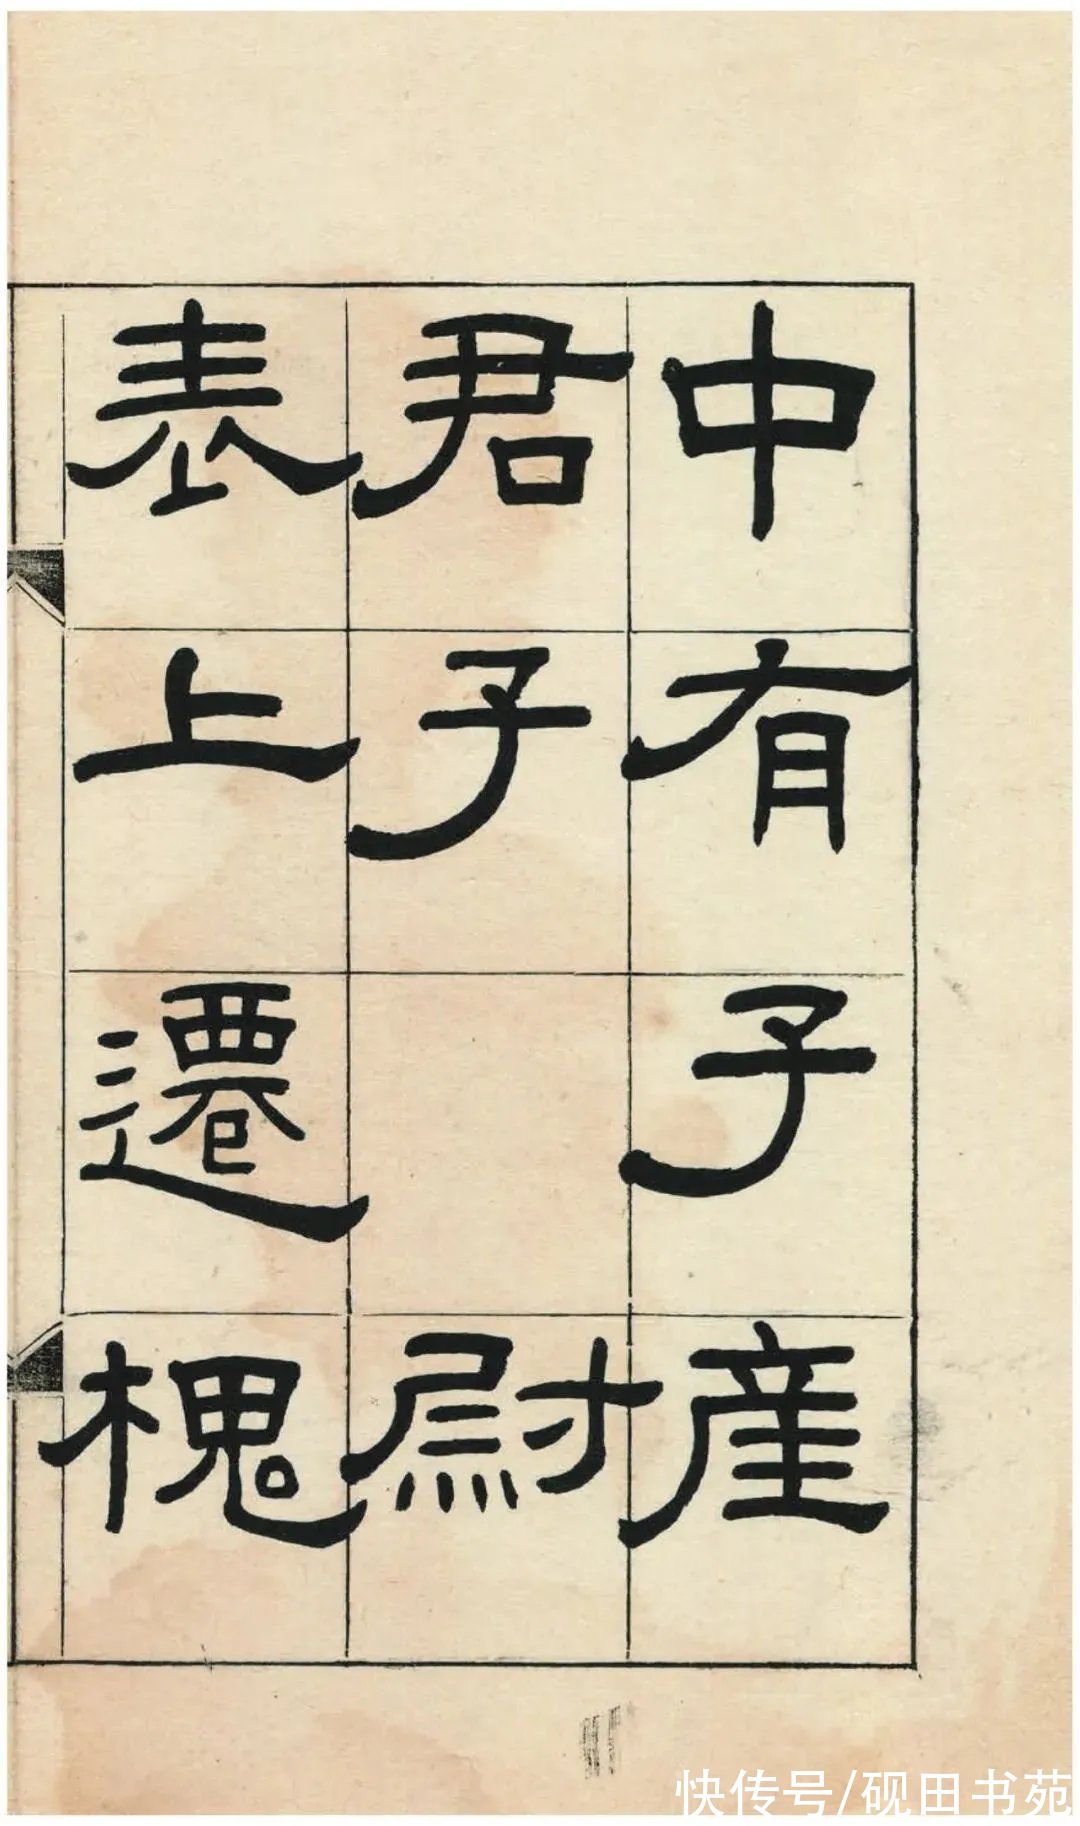 中有子産
君子尉
表上遷槐
快传号/砚田书苑